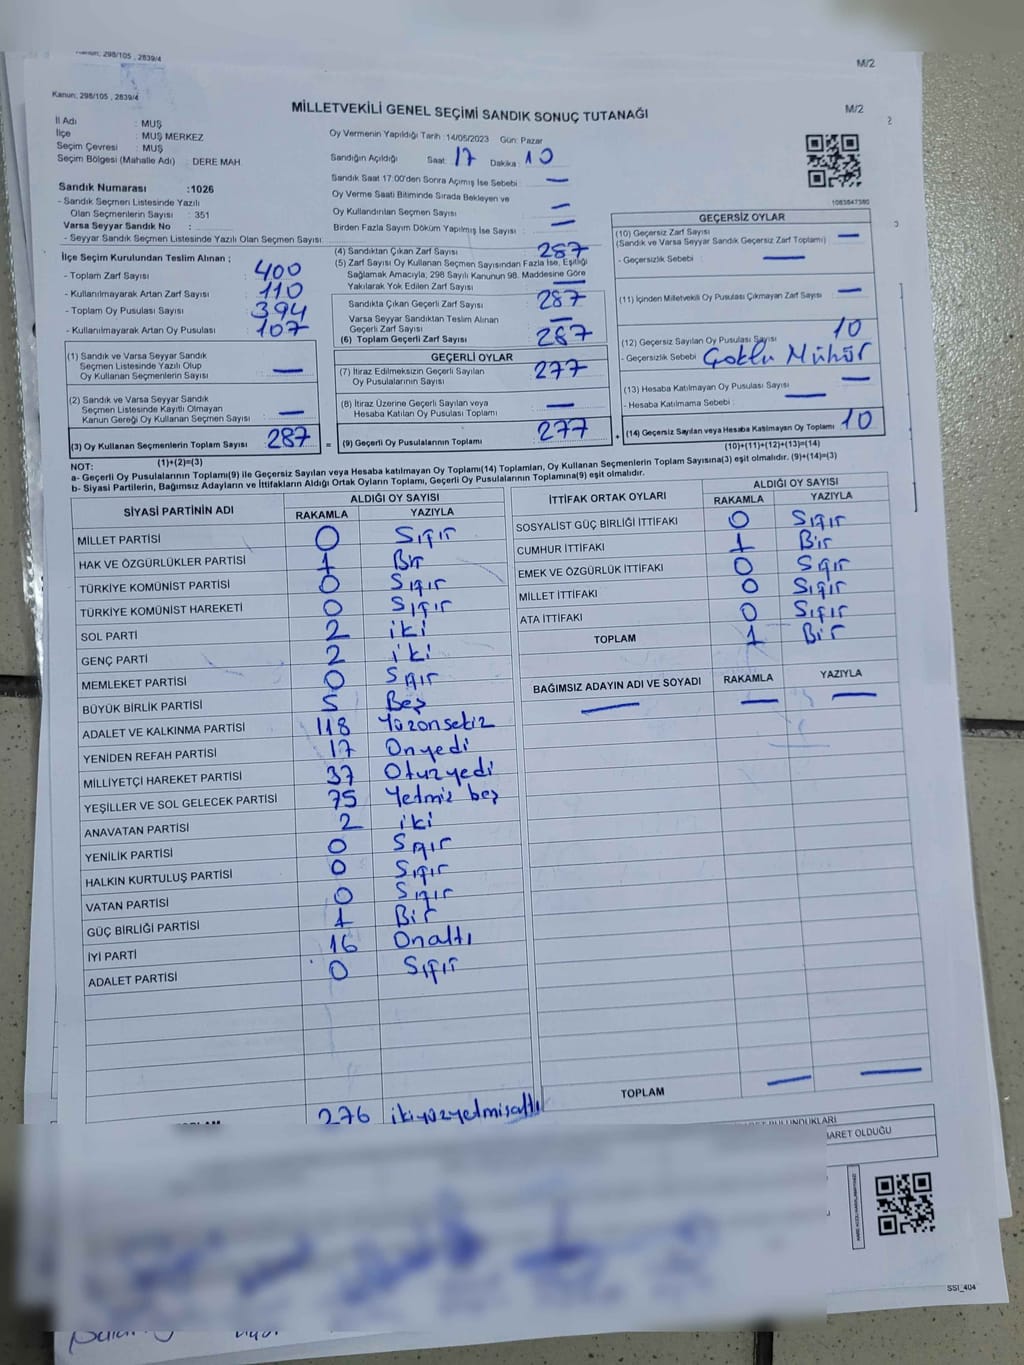 Kanun; 298/105 , 2839/4
M/2
Kanun; 298/105 , 2839/4
MİLLETVEKİLİ GENEL SEÇİMİ SANDIK SONUÇ TUTANAĞI
M/2
İl Adı : MUŞ
İlçe : MUŞ MERKEZ
Seçim Çevresi : MUŞ
Seçim Bölgesi (Mahalle Adı) : DERE MAH
Oy Vermenin Yapıldığı Tarih : 14/05/2023 Gün: Pazar
Sandığın Açıldığı Saat: 17 Dakika : 10
Sandık Saat 17:00'den Sonra Açımış İse Sebebi : —
Oy Verme Saati Bitiminde Sırada Bekleyen ve
Oy Kullandırılan Seçmen Sayısı : —
Birden Fazla Sayım Döküm Yapılmış İse Sayısı : —
Sandık Numarası :1026
- Sandık Seçmen Listesinde Yazılı
Olan Seçmenlerin Sayısı : 351
Varsa Seyyar Sandık No :
- Seyyar Sandık Seçmen Listesinde Yazılı Olan Seçmen Sayısı:
İlçe Seçim Kurulundan Teslim Alınan ;
- Toplam Zarf Sayısı : 400
- Kullanılmayarak Artan Zarf Sayısı : 110
- Toplam Oy Pusulası Sayısı : 394
- Kullanılmayarak Artan Oy Pusulası : 107
(1) Sandık ve Varsa Seyyar Sandık
Seçmen Listesinde Yazılı Olup
Oy Kullanan Seçmenlerin Sayısı : —
(2) Sandık ve Varsa Seyyar Sandık
Seçmen Listesinde Kayıtlı Olmayan
Kanun Gereği Oy Kullanan Seçmen Sayısı : —
(3) Oy Kullanan Seçmenlerin Toplam Sayısı : 287 =
(1)+(2)=(3)
(4) Sandıktan Çıkan Zarf Sayısı : 287
(5) Zarf Sayısı Oy Kullanan Seçmen Sayısından Fazla İse, Eşitliği
Sağlamak Amacıyla, 298 Sayılı Kanunun 98. Maddesine Göre
Yakılarak Yok Edilen Zarf Sayısı : —
Sandıkta Çıkan Geçerli Zarf Sayısı : 287
Varsa Seyyar Sandıktan Teslim Alınan
Geçerli Zarf Sayısı : —
(6) Toplam Geçerli Zarf Sayısı : 287
GEÇERLİ OYLAR
(7) İtiraz Edilmeksizin Geçerli Sayılan
Oy Pusulasının Sayısı : 277
(8) İtiraz Üzerine Geçerli Sayılan veya
Hesaba Katılan Oy Pusulası Toplamı : —
(9) Geçerli Oy Pusulalarının Toplamı : 277 +
1083847380
GEÇERSİZ OYLAR
(10) Geçersiz Zarf Sayısı : —
(Sandık ve Varsa Seyyar Sandık Geçersiz Zarf Toplamı)
- Geçersizlik Sebebi : —
(11) İçinden Milletvekili Oy Pusulası Çıkmayan Zarf Sayısı : —
(12) Geçersiz Sayılan Oy Pusulası Sayısı : 10
- Geçersizlik Sebebi : Çoklu Mühür
(13) Hesaba Katılmayan Oy Pusulası Sayısı : —
- Hesaba Katılmama Sebebi : —
(14) Geçersiz Sayılan veya Hesaba Katılmayan Oy Toplamı : 10
(10)+(11)+(12)+(13)=(14)
NOT:
a- Geçerli Oy Pusulalarının Toplamı(9) ile Geçersiz Sayılan veya Hesaba katılmayan Oy Toplamı(14) Toplamları, Oy Kullanan Seçmenlerin Toplam Sayısına(3) eşit olmalıdır. (9)+(14)=(3)
b- Siyasi Partilerin, Bağımsız Adayların ve İttifakların Aldığı Ortak Oyların Toplamı, Geçerli Oy Pusulalarının Toplamına(9) eşit olmalıdır.
SİYASİ PARTİNİN ADI ALDIĞI OY SAYISI
RAKAMLA YAZIYLA
MİLLET PARTİSİ 0 Sıfır
HAK VE ÖZGÜRLÜKLER PARTİSİ 1 Bir
TÜRKİYE KOMÜNİST PARTİSİ 0 Sıfır
TÜRKİYE KOMÜNİST HAREKETİ 0 Sıfır
SOL PARTİ 2 iki
GENÇ PARTİ 2 iki
MEMLEKET PARTİSİ 0 Sıfır
BÜYÜK BİRLİK PARTİSİ 5 Beş
ADALET VE KALKINMA PARTİSİ 118 Yüzonsekiz
YENİDEN REFAH PARTİSİ 17 Onyedi
MİLLİYETÇİ HAREKET PARTİSİ 37 Otuzyedi
YEŞİLLER VE SOL GELECEK PARTİSİ 75 Yetmiş beş
ANAVATAN PARTİSİ 2 iki
YENİLİK PARTİSİ 0 Sıfır
HALKIN KURTULUŞ PARTİSİ 0 Sıfır
VATAN PARTİSİ 0 Sıfır
GÜÇ BİRLİĞİ PARTİSİ 1 Bir
İYİ PARTİ 16 Onaltı
ADALET PARTİSİ 0 Sıfır
276 ikiyüzyetmişaltı
İTTİFAK ORTAK OYLARI ALDIĞI OY SAYISI
RAKAMLA YAZIYLA
SOSYALİST GÜÇ BİRLİĞİ İTTİFAKI 0 Sıfır
CUMHUR İTTİFAKI 1 Bir
EMEK VE ÖZGÜRLÜK İTTİFAKI 0 Sıfır
MİLLET İTTİFAKI 0 Sıfır
ATA İTTİFAKI 0 Sıfır
TOPLAM 1 Bir
BAĞIMSIZ ADAYIN ADI VE SOYADI RAKAMLA YAZIYLA
— — —
TOPLAM — —
OLDUĞU
SSI_404